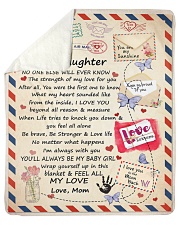 ughter
NO ONE ELSE WILL EVER KNOW
The strength of my love for you
After all, You were the first one to know
What my heart sounded like
from the inside, I LOVE YOU
beyond all reason & measure
When Life tries to knock you down &
you feel all alone
Be brave, Be Stronger & Love life
No matter what happens
I'm always with you
YOU'LL ALWAYS BE MY BABY GIRL
Wrap yourself up in this
blanket & FEEL ALL
MY LOVE
Love, Mom
You are my
Sunshine
I am so proud
of you
Love
I love you
Moon
Back